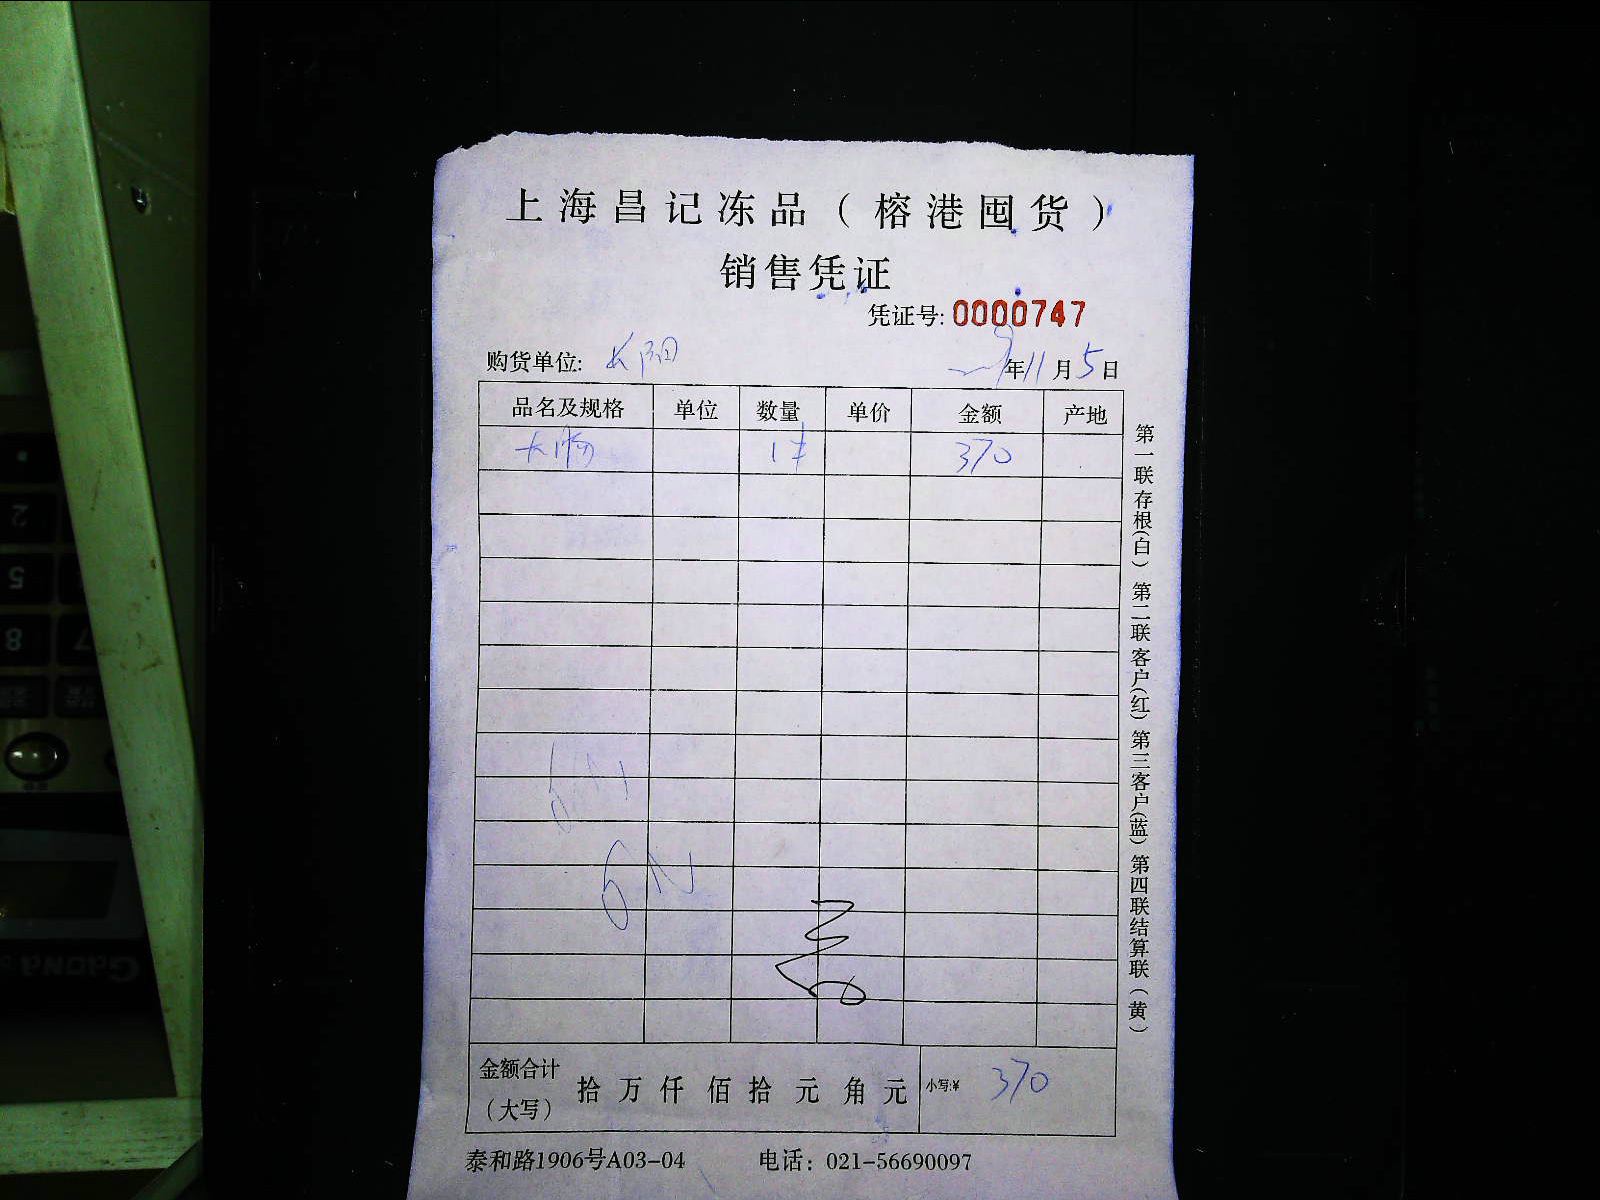 上海昌记冻品（榕港囤货）
销售凭证
凭证号: 0000747
购货单位: 长阳
年11月5日
品名及规格 单位 数量 单价 金额 产地
大肠 1件 370
金额合计（大写） 拾 万 仟 佰 拾 元 角 元 小写:¥ 370
泰和路1906号A03-04 电话：021-56690097
第一联存根(白) 第二联客户(红) 第三客户(蓝) 第四联结算联(黄)
2
5
8
7